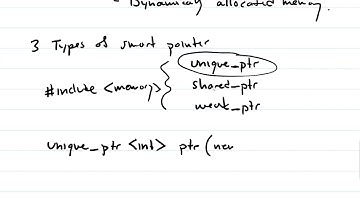 - Dynamically allocated memory.
3 Types of smart pointer
unique_ptr
#include <memory> { shared_ptr
weak_ptr
unique_ptr <int> ptr (new